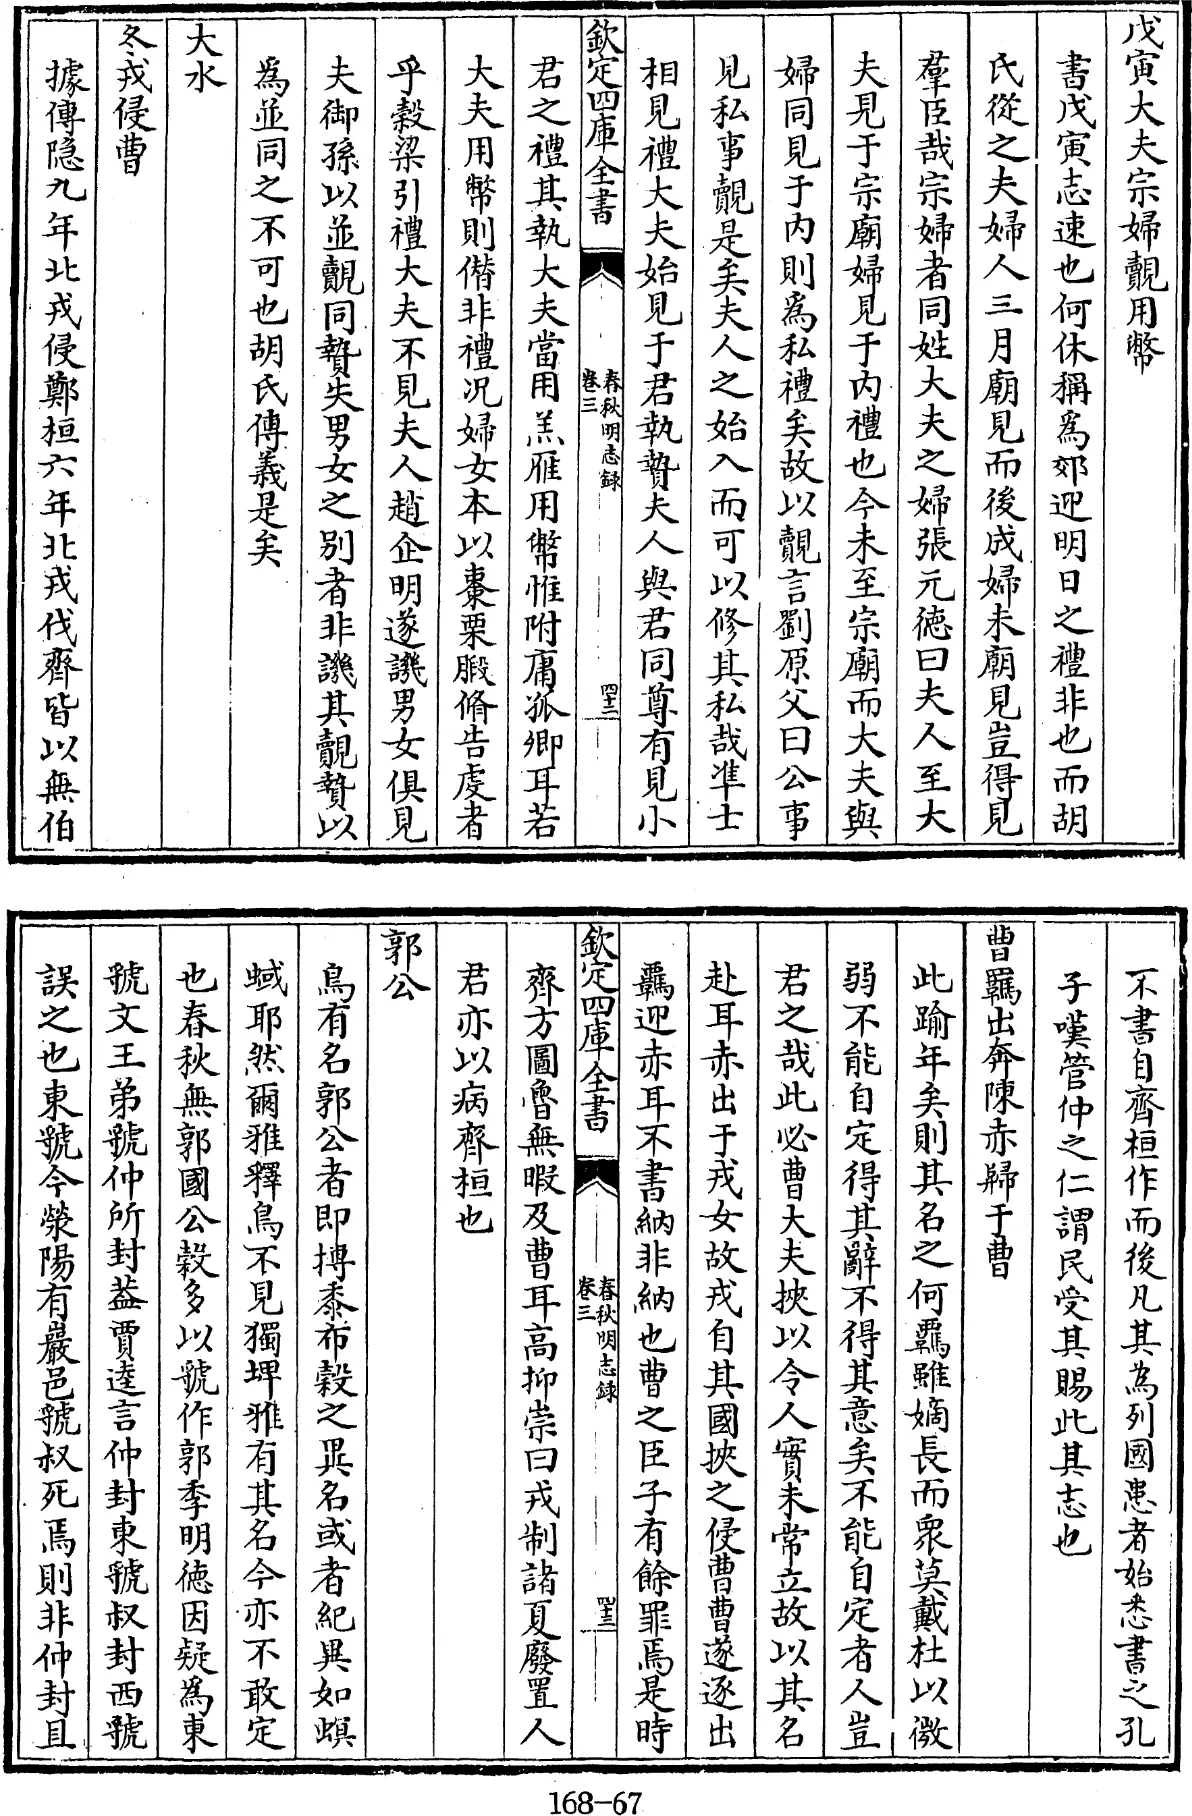 戊寅大夫宗婦覿用幣
書戊寅志速也何休稱爲郊迎明日之禮非也而胡
氏從之夫婦人三月廟見而後成婦未廟見豈得見
羣臣哉宗婦者同姓大夫之婦張元德曰夫人至大
夫見于宗廟婦見于内禮也今未至宗廟而大夫與
婦同見于内則爲私禮矣故以覿言劉原父曰公事
見私事覿是矣夫人之始入而可以修其私哉凖士
相見禮大夫始見于君執贄夫人與君同尊有見小
欽定四庫全書
春秋明志録
卷三
四十二
君之禮其執大夫當用羔雁用幣惟附庸孤卿耳若
大夫用幣則僭非禮况婦女本以棗栗腶脩告虔者
乎穀梁引禮大夫不見夫人趙企明遂譏男女俱見
夫御孫以並覿同贄失男女之别者非譏其覿贄以
爲並同之不可也胡氏傳義是矣
大水
冬戎侵曹
據傳隐九年北戎侵鄭桓六年北戎伐齊皆以無伯
不書自齊桓作而後凡其為列國患者始悉書之孔
子嘆管仲之仁謂民受其賜此其志也
曹羈出奔陳赤歸于曹
此踰年矣則其名之何羈雖嫡長而衆莫戴杜以微
弱不能自定得其辭不得其意矣不能自定者人豈
君之哉此必曹大夫挾以令人實未常立故以其名
赴耳赤出于戎女故戎自其國挾之侵曹曹遂逐出
羈迎赤耳不書納非納也曹之臣子有餘罪焉是時
欽定四庫全書
春秋明志録
卷三
四十三
齊方圖魯無暇及曹耳高抑崇曰戎制諸夏廢置人
君亦以病齊桓也
郭公
鳥有名郭公者即摶黍布穀之異名或者紀異如螟
蜮耶然爾雅釋鳥不見獨埤雅有其名今亦不敢定
也春秋無郭國公穀多以虢作郭季明德因疑爲東
虢文王弟虢仲所封葢賈逵言仲封東虢叔封西虢
誤之也東虢今滎陽有巖邑虢叔死焉則非仲封且
168-67